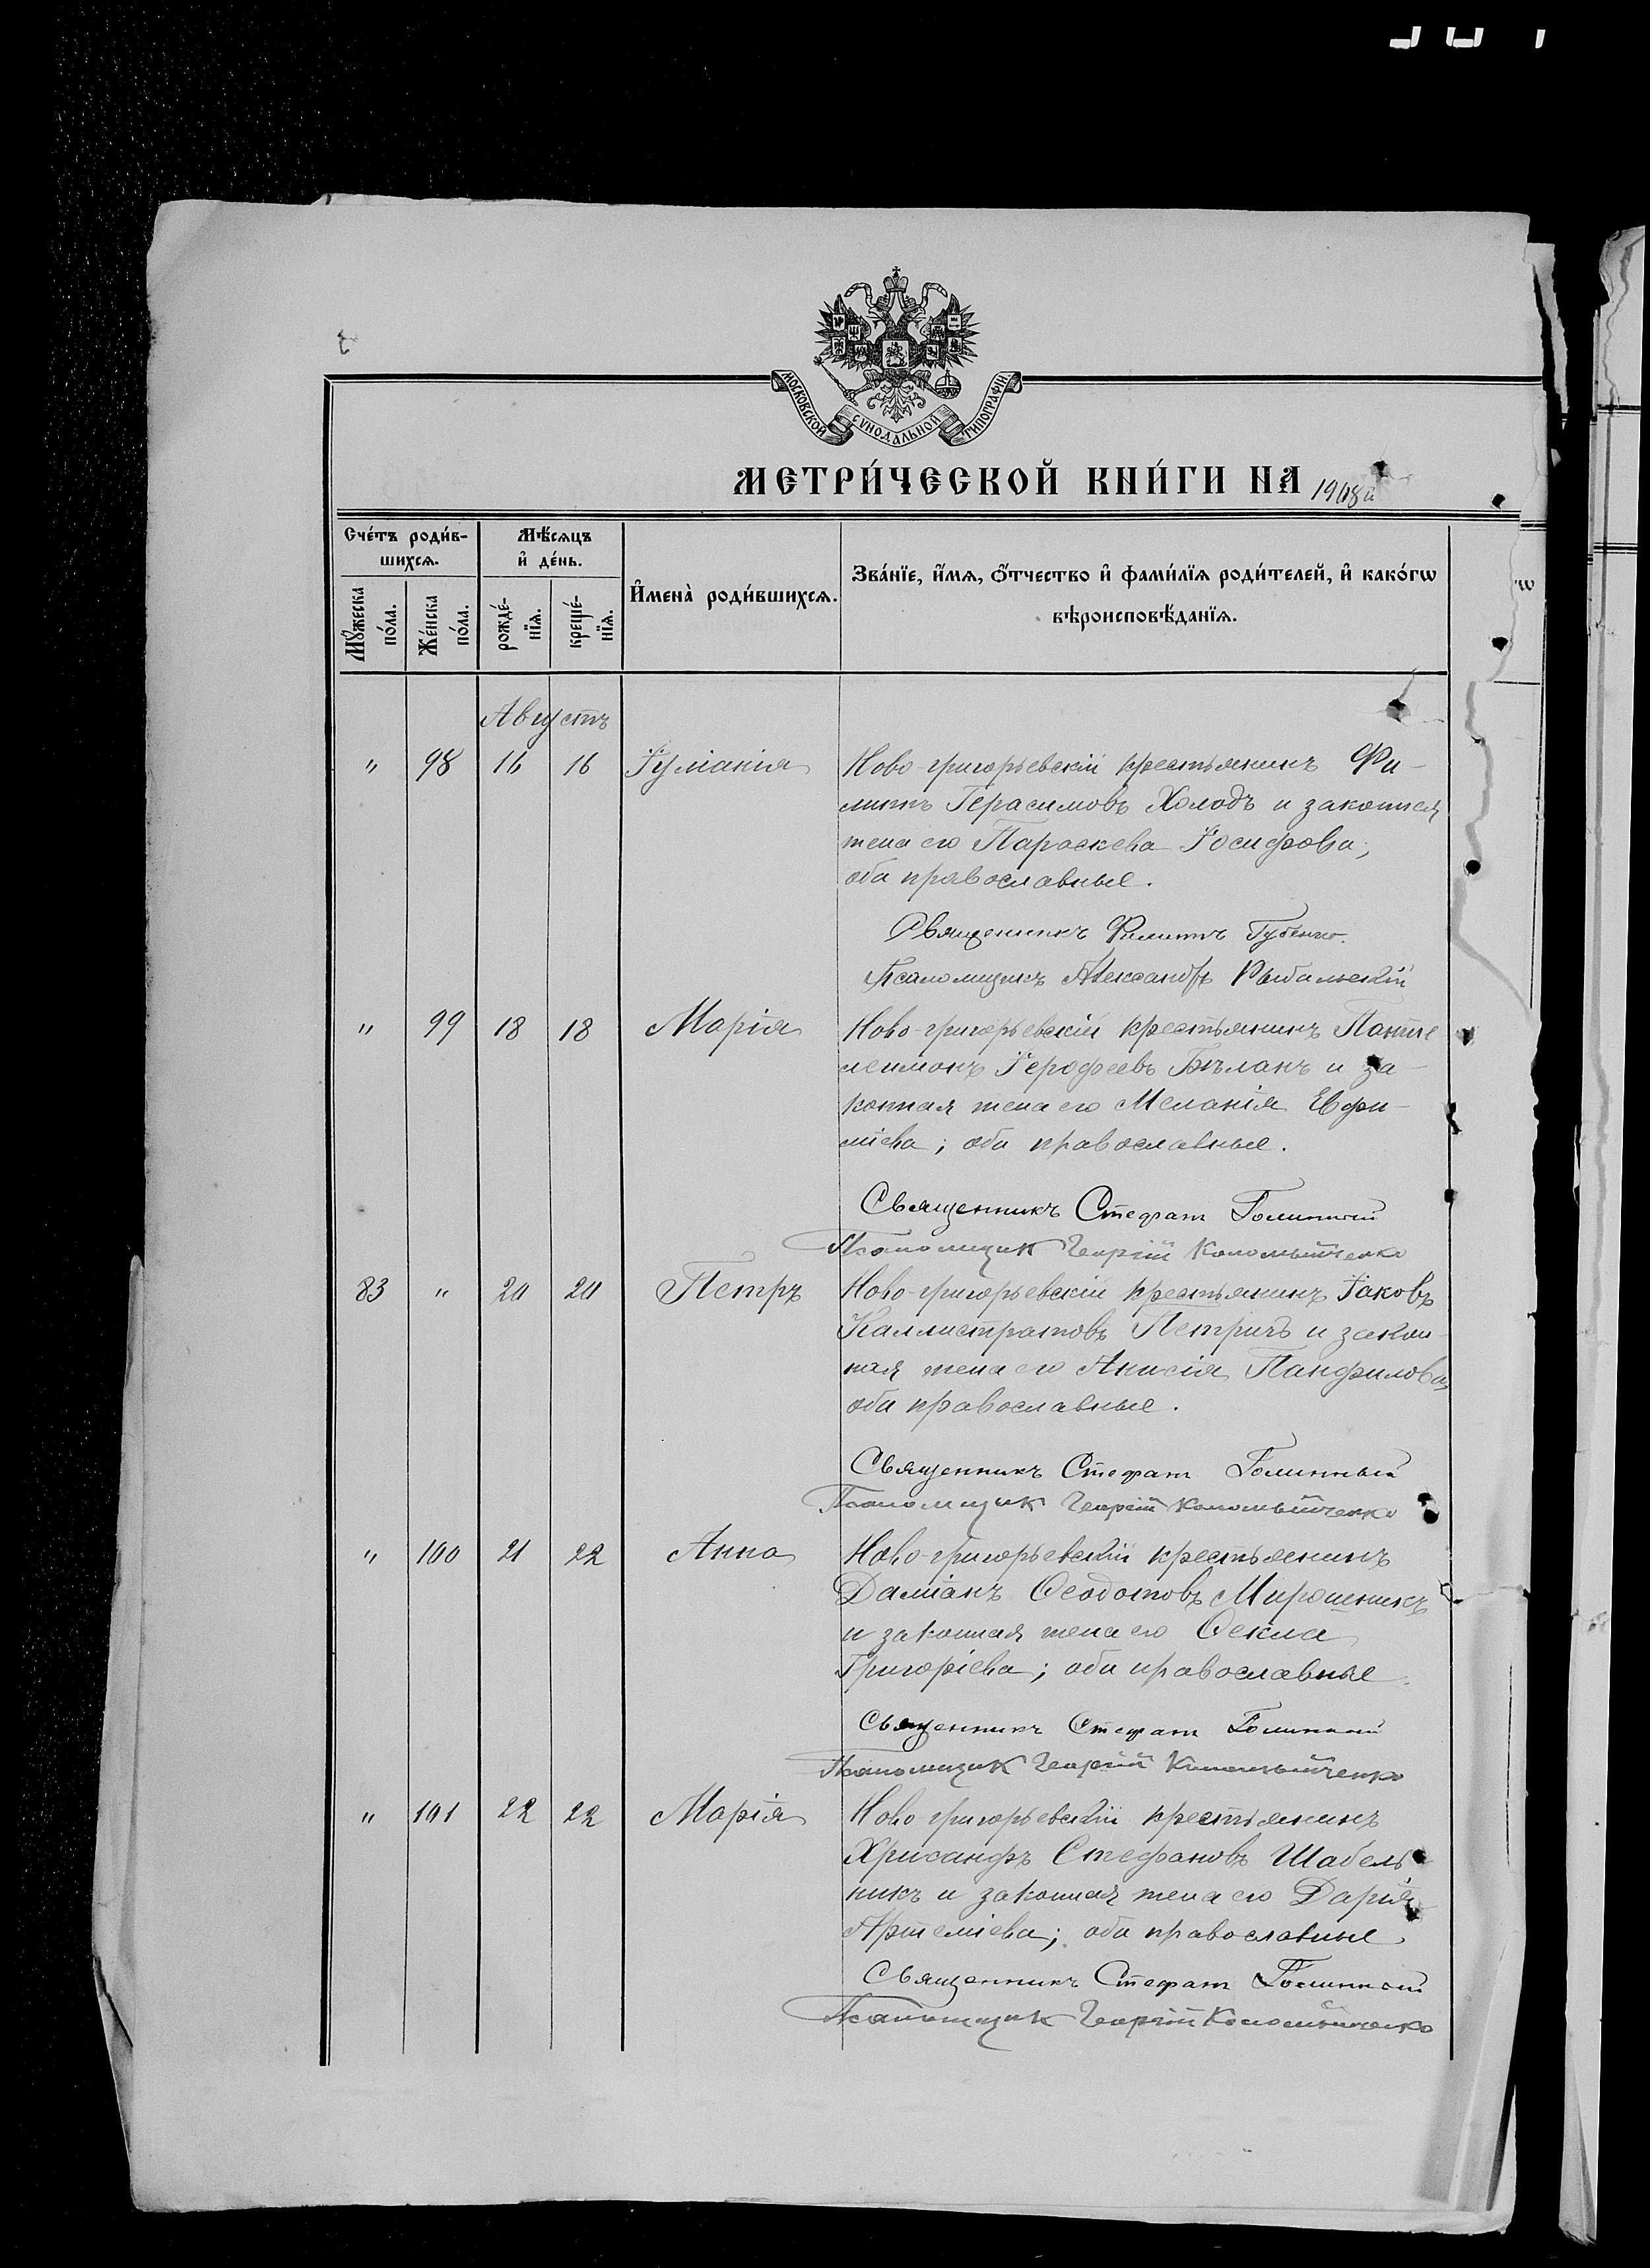 МОСКОВСКОЙ СѴНОДАЛЬНОЙ ТИПОГРАФІИ
МЕТРИ́ЧЕСКОЙ КНИ́ГИ НА 1908 г.
Сче́тъ роди́в-
шихсѧ.
Мѣ́сѧцъ
и҆ де́нь.
И҆мена̀ роди́вшихсѧ.
Зва́нїе, и҆́мѧ, ѻ҆́тчество и҆ фами́лїѧ роди́телей, и҆ како́гѡ
вѣроисповѣ́данїѧ.
Мꙋ́жеска
по́ла.
Же́нска
по́ла.
рожде́-
нїѧ.
креще́-
нїѧ.
Августъ
" 98 16 16 Іуліанія Ново-григорьевскій крестьянинъ Фи-
липпъ Герасимовъ Холодъ и законная
жена его Параскева Іосифова;
оба православные.
Священникъ Филиппъ Губенко.
Псаломщикъ Александръ Рыбальскій
" 99 18 18 Марія Ново-григорьевскій крестьянинъ Панте
леимонъ Іерофеевъ Бѣланъ и за-
конная жена его Меланія Евфи-
міева; оба православные.
Священникъ Стефанъ Голинный
Псаломщик Георгій Коломыйченко
83 " 20 20 Петръ Ново-григорьевскій крестьянинъ Іаковъ
Каллистратовъ Петричъ и закон-
ная жена его Анисія Панфилова,
оба православные.
Священникъ Стефанъ Голинный
Псаломщик Георгій Коломыйченко
" 100 21 22 Анна Ново-григорьевскій крестьянинъ
Даміанъ Ѳеодотовъ Мирошникъ
и законная жена его Ѳекла
Григоріева; оба православные.
Священникъ Стефанъ Голинный
Псаломщик Георгій Коломыйченко
" 101 22 22 Марія Ново григорьевскій крестьянинъ
Хрисанфъ Стефановъ Шабель-
никъ и законная жена его Дарія
Артеміева; оба православные
Священникъ Стефанъ Голинный
Псаломщик Георгій Коломыйченко